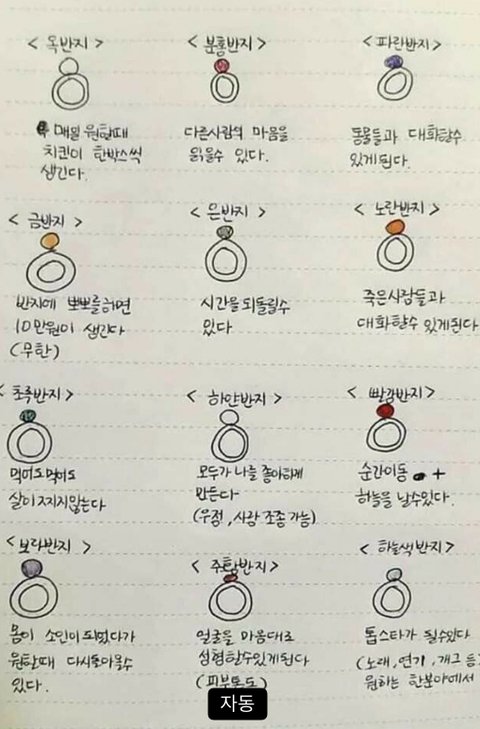 < 옥반지 >
매월 원할때
치킨이 한박스씩
생긴다.
< 분홍반지 >
다른사람의 마음을
읽을수 있다.
< 파란반지 >
동물들과 대화할수
있게된다.
< 금반지 >
반지에 뽀뽀를하면
10만원이 생긴다
(무한)
< 은반지 >
시간을되돌릴수
있다
< 노란반지 >
죽은사람들과
대화할수 있게된다
< 초록반지 >
먹어도먹어도
살이찌지않는다
< 하얀반지 >
모두가 나를 좋아하게
만든다
(우정, 사랑 조종 가능)
< 빨강반지 >
순간이동 +
하늘을 날수있다.
< 보라반지 >
몸이 소인이되었다가
원할때 다시돌아올수
있다.
< 주황반지 >
얼굴을 마음대로
성형할수있게된다
(피부톤도)
< 하늘색반지 >
톱스타가 될수있다
(노래, 연기, 개그 등)
원하는 한분야에서
자동